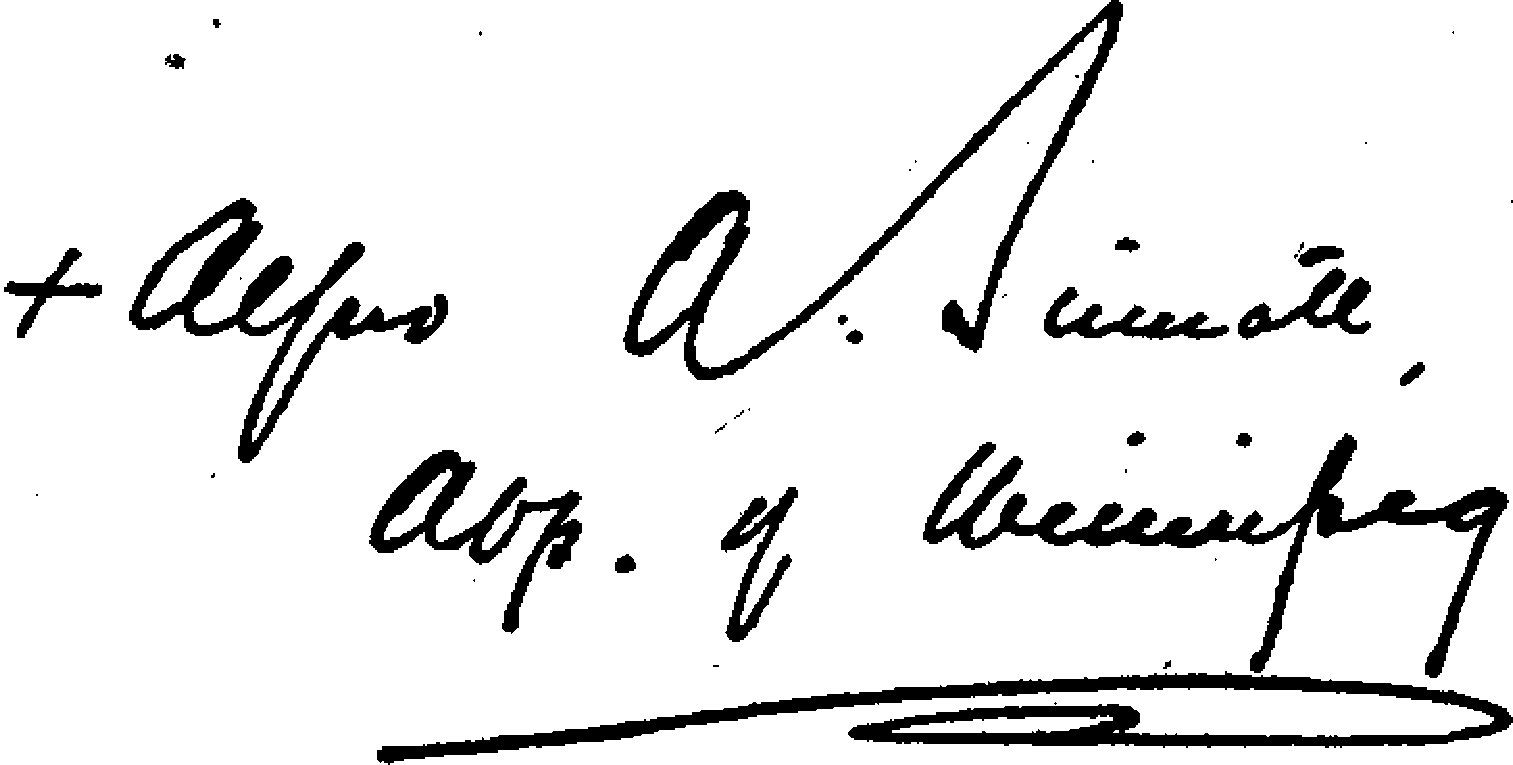 + Alfred A. Sinnott,
Abp. of Winnipeg